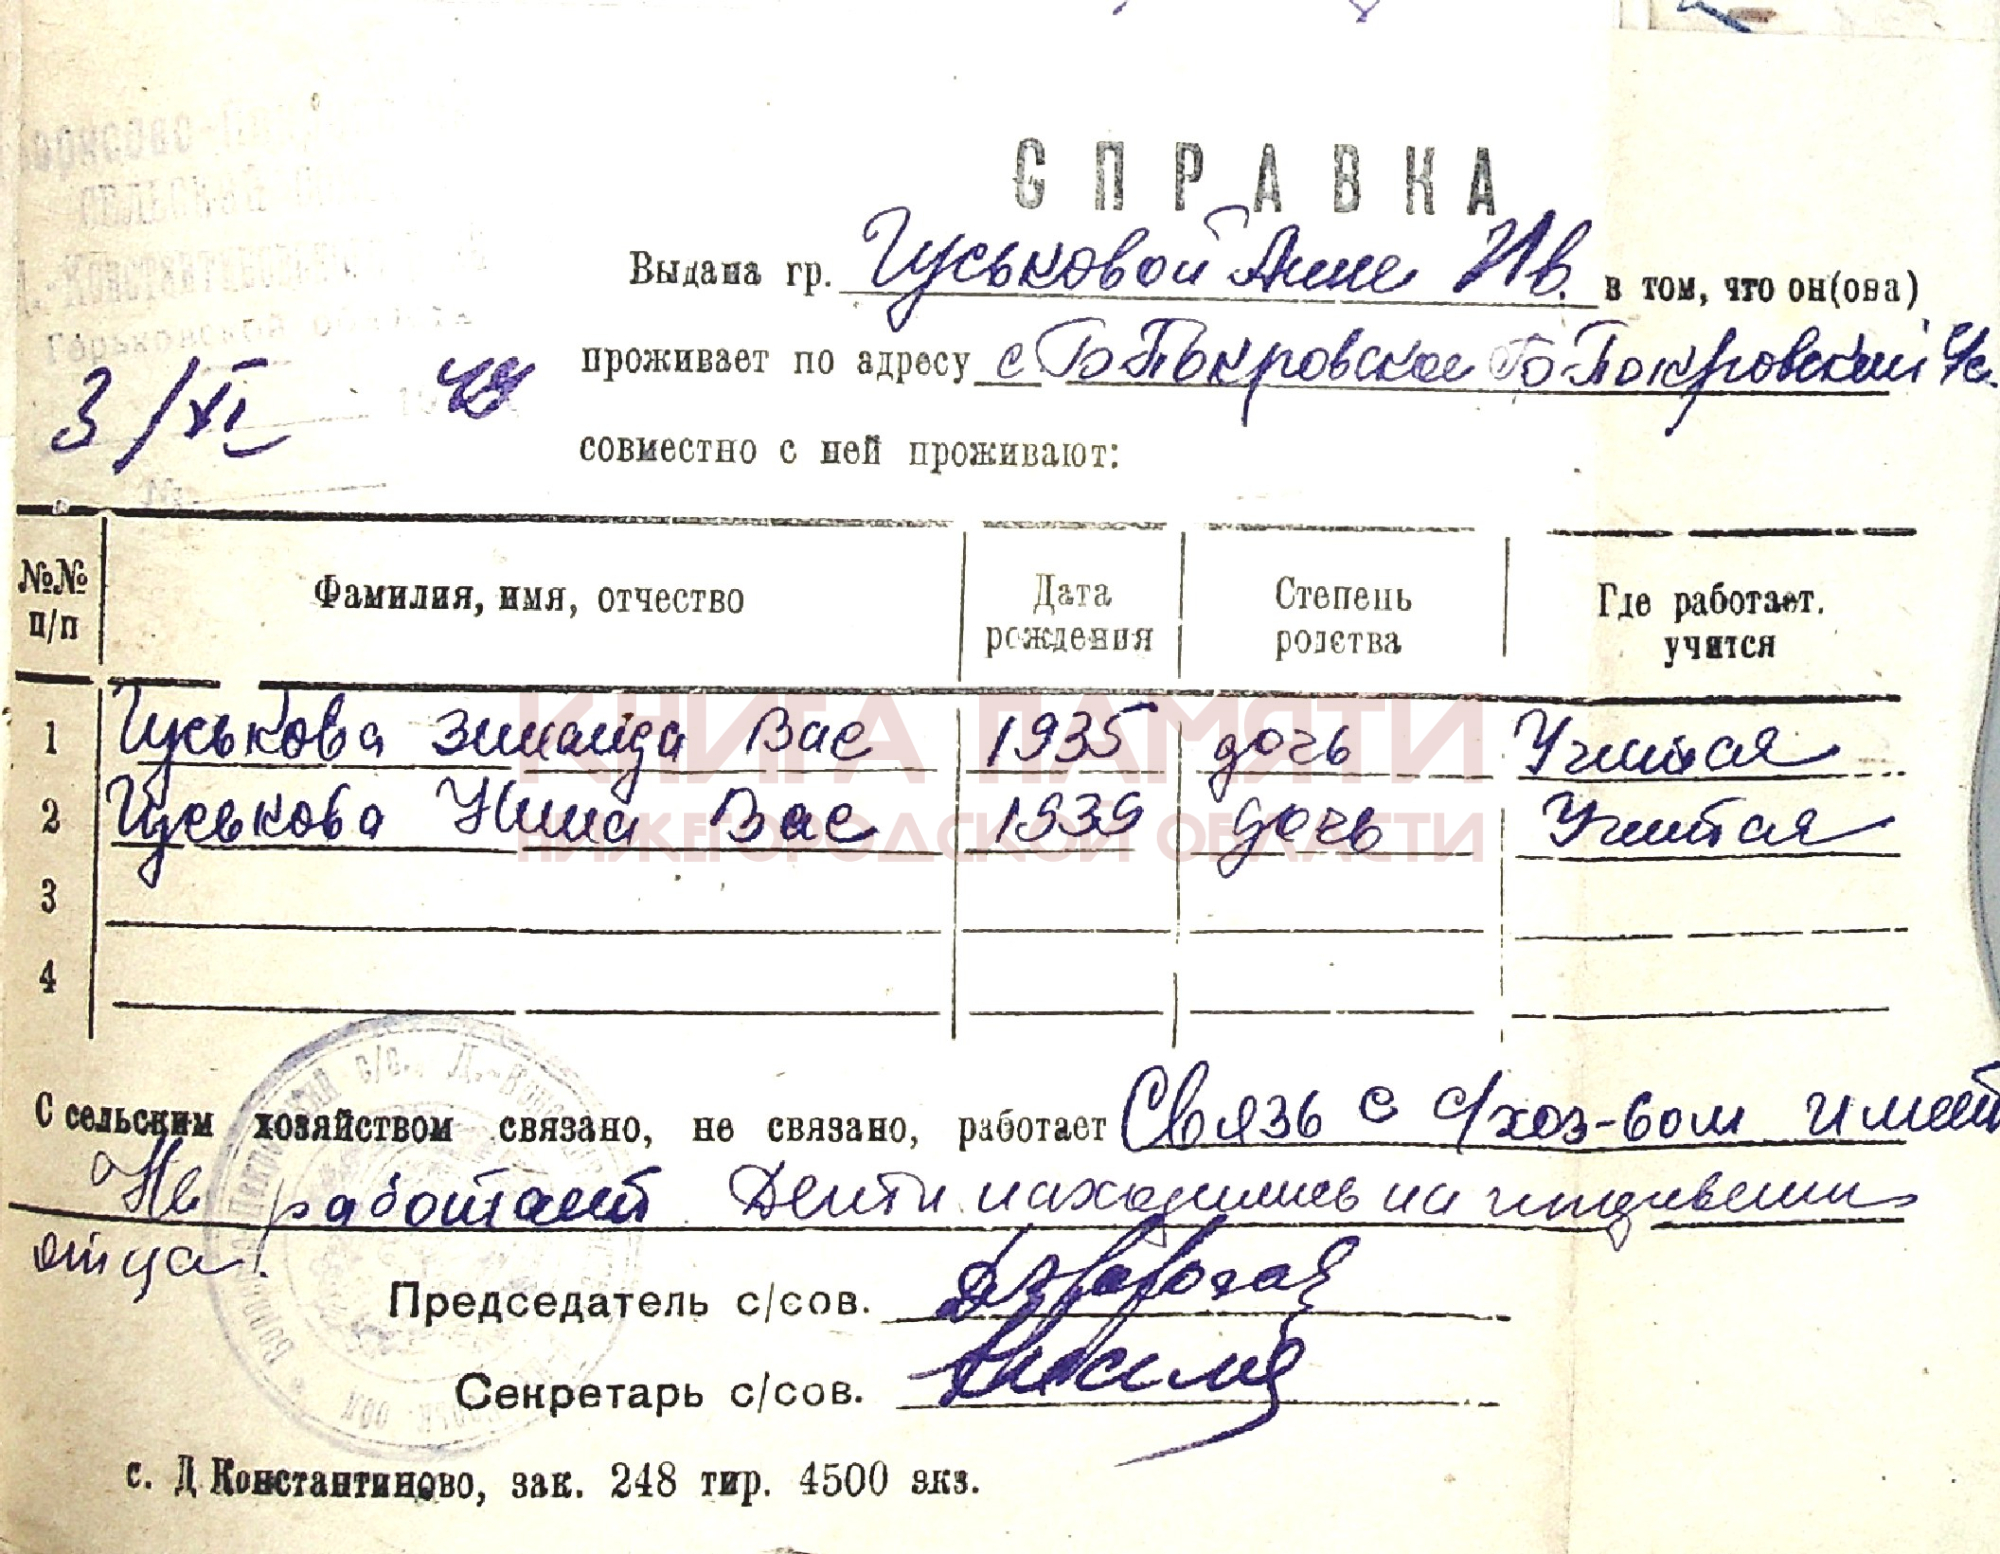 СПРАВКА
СЕЛЬСКОЙ
Д.-Константиновского
Горьковской области
Выдана гр. Гуськовой Анне Ив. в том, что он(она)
проживает по адресу с Б-Покровское Б-Покровский с/с.
3/XI 49
совместно с ней проживают:
№
№№ п/п Фамилия, имя, отчество Дата рождения Степень родства Где работает. учится
1 Гуськова Зинаида Вас 1935 дочь Учится
2 Гуськова Нина Вас 1939 дочь Учится
3
4
КНИГА ПАМЯТИ
НИЖЕГОРОДСКОЙ ОБЛАСТИ
С сельским хозяйством связано, не связано, работает Связь с с/хоз-вом имеет
Не работает Дети находились на иждивении
отца.
Председатель с/сов.
Секретарь с/сов.
с. Д Константиново, зак. 248 тир. 4500 экз.